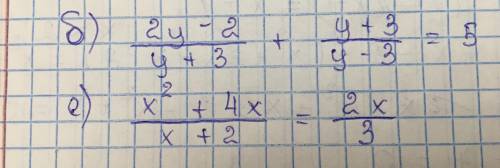 б) (2y - 2)/(y + 3) + (y + 3)/(y - 3) = 5
е) (x² + 4x)/(x + 2) = 2x/3